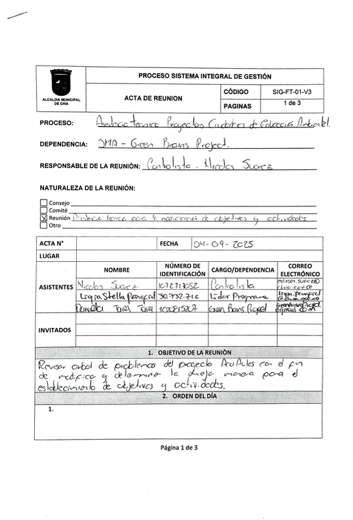 ALCALDÍA MUNICIPAL
DE CHIA
PROCESO SISTEMA INTEGRAL DE GESTIÓN
ACTA DE REUNION
CÓDIGO
SIG-FT-01-V3
PAGINAS
1 de 3
PROCESO: Asistencia Tecnica Proyectos Ciudadanos de Educación Ambiental
DEPENDENCIA: SMA - Green Brains Project.
RESPONSABLE DE LA REUNIÓN: Contratista - Nicolas Suarez
NATURALEZA DE LA REUNIÓN:
Consejo
Comité
Reunión Asistencia tecnica para la de objetivos y actividades
Otro
ACTA N°
FECHA
04-09-2025
LUGAR
NOMBRE
NÚMERO DE IDENTIFICACIÓN
CARGO/DEPENDENCIA
CORREO ELECTRÓNICO
ASISTENTES
Nicolas Suarez
Contratista
Ligia Stella
Lider Programa
Daniela
Green Brains Project
INVITADOS
1. OBJETIVO DE LA REUNIÓN
Revisar arbol de problemas del proyecto con el fin
de modificar y determinar la mejor manera para el
establecimiento de objetivos y actividades.
2. ORDEN DEL DÍA
1.
Página 1 de 3